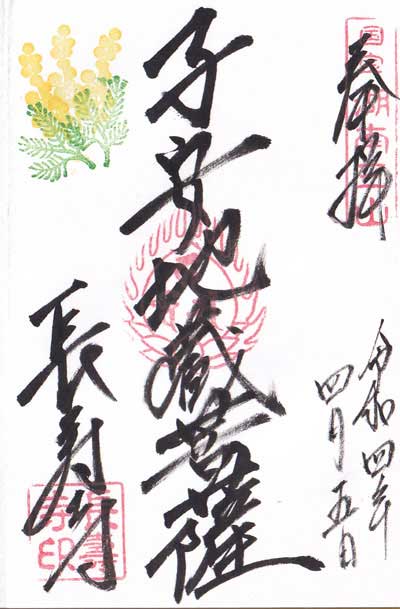 奉拝
令和四年
四月五日
子安地蔵菩薩
長寿寺
長壽
寺印